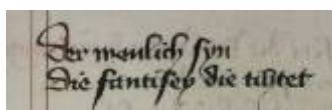 Der manlich syn
Die fantisey die tihtet